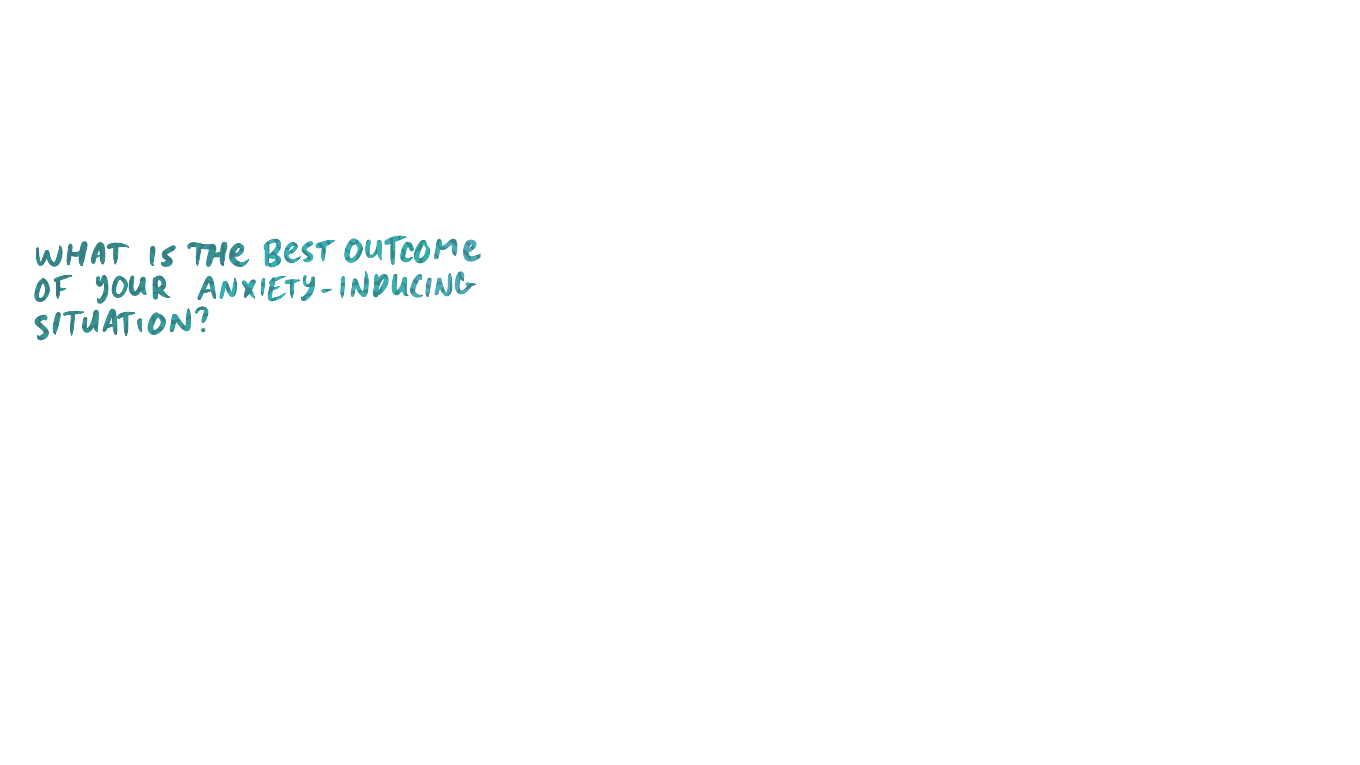 WHAT IS THE BEST OUTCOME
OF YOUR ANXIETY-INDUCING
SITUATION?